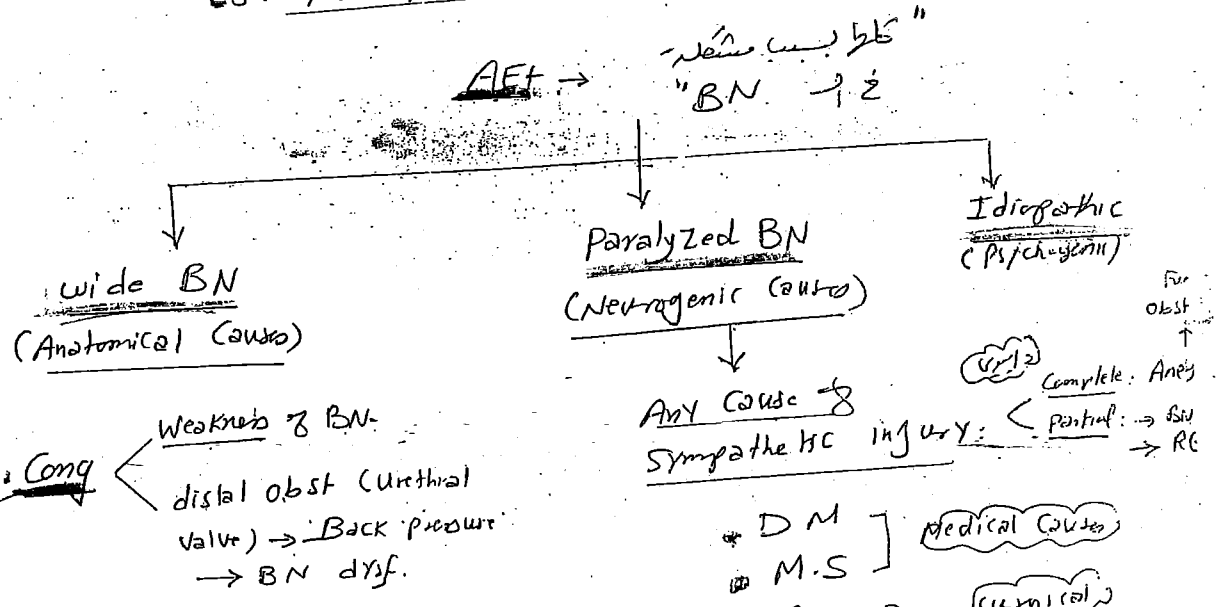 AEt → "غالبا بسبب مشكلة
في ال BN"
wide BN
(Anatomical Causes)
Cong
Weakness of BN.
distal obst (urethral
valve) → Back pressure
→ BN dysf.
Paralyzed BN
(Neurogenic Causes)
Any Cause of
sympathetic injury:
Complete:
Partial: → BN
→ RE
obst
↑
• DM
• M.S
Medical Causes
Surgical
Idiopathic
(Psychogenic)